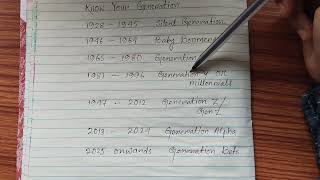 Know Your Generation
1928 - 1945 Silent Generation
1946 - 1964 Baby Boomers
1965 - 1980 Generation
1981 - 1996 Generation Y OR
Millennials
1997 - 2012 Generation Z /
Gen Z
2013 - 2024 Generation Alpha
2025 onwards Generation Beta